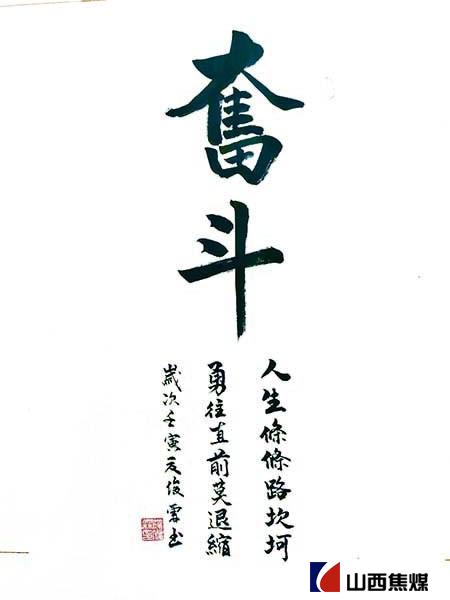 奮
斗
人生條條路坎坷
勇往直前莫退縮
歲次壬寅 俊
山西焦煤